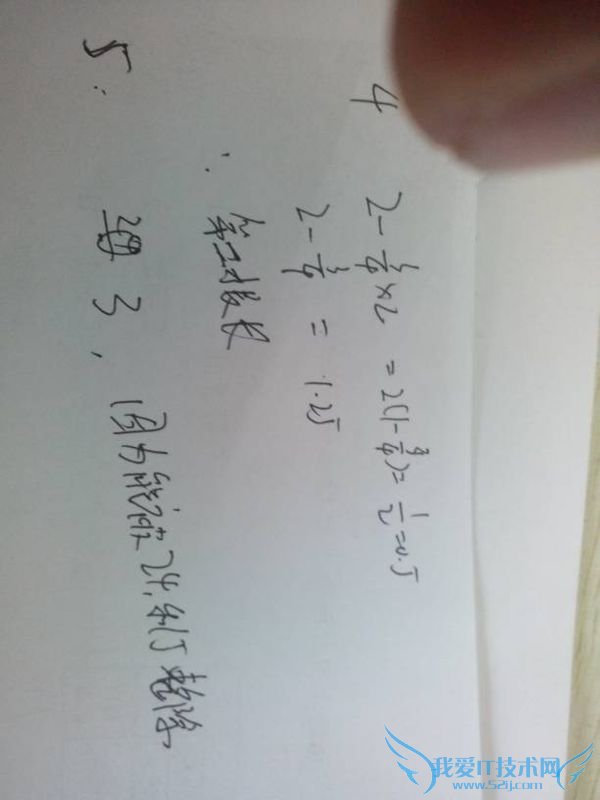 4
2-3/4×2 = 2(1-3/4)= 1/2 =0.5
2-3/4 = 1.25
∴ 第二根长
5:
3, 因为能被24,和15整除
我爱IT技术网
www.52ij.com